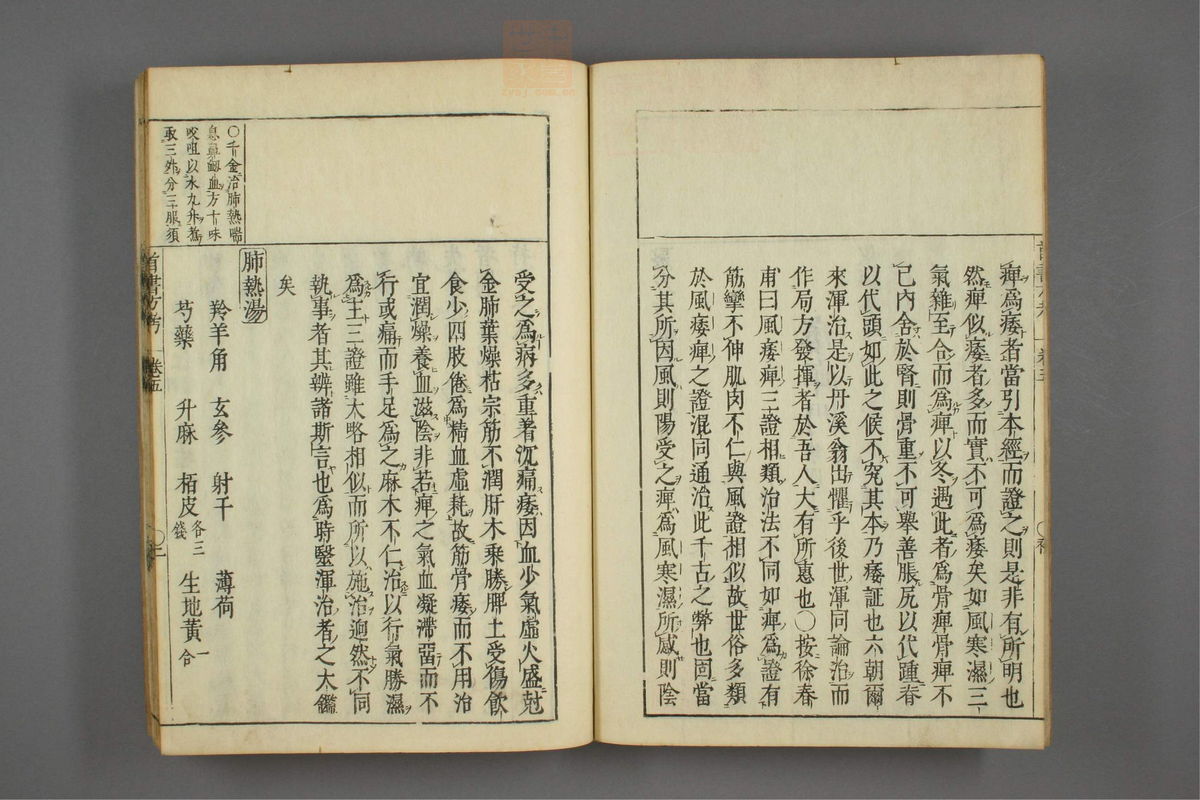 痺爲痿者當引本經而證之則是非有所明也
然痺似痿者多而實不可爲痿矣如風寒濕三
氣雜至合而爲痺以冬遇此者爲骨痺骨痺不
已內舍於腎則骨重不可舉善脹尻以代踵脊
以代頭如此之候不究其本乃痿証也六朝爾
來渾治是以丹溪翁出懼乎後世渾同論治而
作局方發揮者於吾人大有所惠也〇按徐春
甫曰風痿痺三證相類治法不同如痺爲證有
筋攣不伸肌肉不仁與風證相似故世俗多類
於風痿痺之證混同通治此千古之弊也固當
分其所因風則陽受之痺爲風寒濕所感則陰
受之爲病多重著沉痛痿因血少氣虛火盛尅
金肺葉燥枯宗筋不潤肝木乘勝脾土受傷飲
食少四肢倦爲精血虛耗故筋骨痿而不用治
宜潤燥養血滋陰非若痺之氣血凝滯留而不
行或痛而手足爲之麻木不仁治以行氣勝濕
爲主三證雖大略相似而所以施治迥然不同
執事者其辨諸斯言也爲時醫渾治者之大鑑
矣
肺熱湯
羚羊角 玄參 射干 薄荷
芍藥 升麻 栢皮各三錢 生地黃一合
〇千金治肺熱喘
息鼻衂血方十味
㕮咀以水九升煮
取三升分三服須
首書方考 卷五 〇二